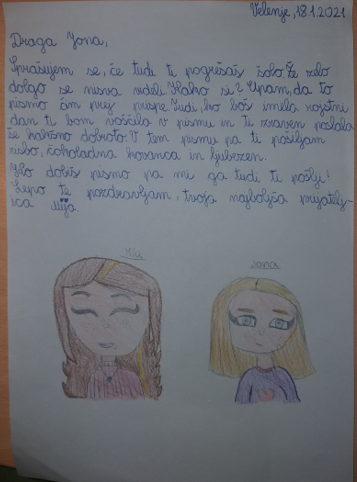 Velenje, 18.1.2021
Draga Jona,
Sprašujem se, če tudi ti pogrešaš šolo. Že zelo
dolgo se nisva videli. Kako si? Upam, da to
pismo čim prej prispe. Tudi, ko boš imela rojstni
dan ti bom voščila v pismu in ti zraven poslala
še kakšno dobroto. V tem pismu pa ti pošiljam
risbo, čokoladna kovanca in ljubezen.
Ko dobiš pismo pa mi ga tudi ti pošlji!
Lepo te pozdravljam, tvoja najboljša prijatelj-
ica Mija.
Mija
Jona